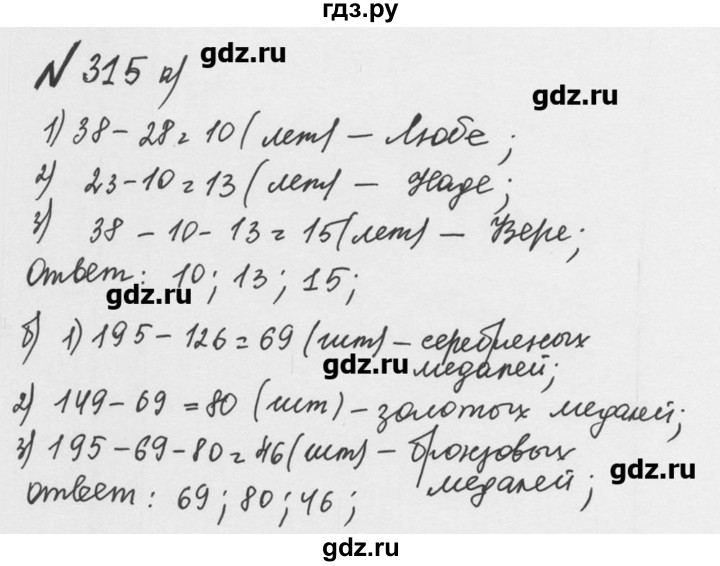 гдз.ру
№ 315 а)
gdz.ru
gdz.ru
1) 38 - 28 = 10 (лет) - Любе;
2) 23 - 10 = 13 (лет) - Наде;
3) 38 - 10 - 13 = 15 (лет) - Вере;
Ответ: 10; 13; 15;
gdz.ru
б) 1) 195 - 126 = 69 (шт) - серебряных
gdz.ru
медалей;
2) 149 - 69 = 80 (шт) - золотых медалей;
3) 195 - 69 - 80 = 46 (шт) - бронзовых
gdz.ru
медалей;
Ответ: 69; 80; 46;
gdz.ru